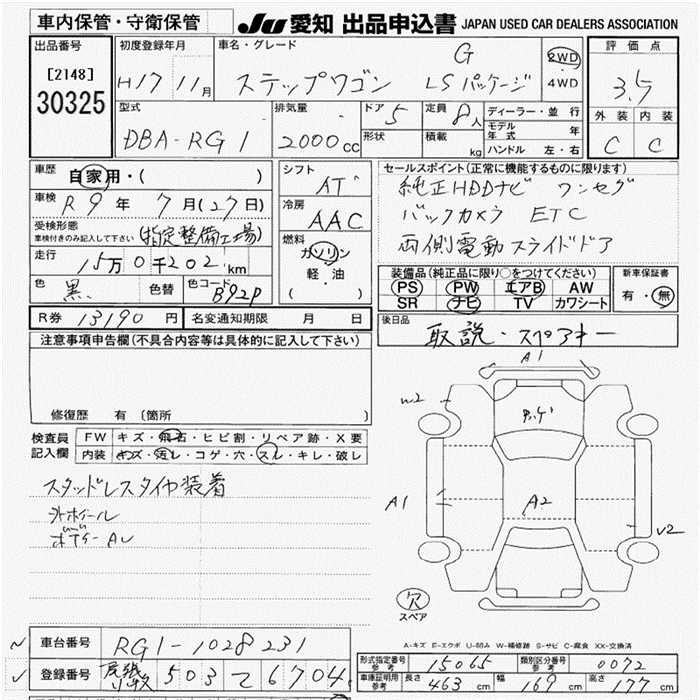 車内保管・守衛保管
JU 愛知 出品申込書 JAPAN USED CAR DEALERS ASSOCIATION
出品番号
[2148]
30325
初度登録年月
H17 11月
車名・グレード
ステップワゴン G LSパッケージ
2WD
4WD
評価点
3.5
外装 内装
C C
型式
DBA-RG1
排気量
2000cc
ドア 5
形状
定員 8人
積載 kg
ディーラー・並行
モデル年式 年
ハンドル 左・右
車歴
自家用・( )
車検 R9年 7月(27日)
受検形態
車検付きのみ記入して下さい (指定整備工場)
走行 15万0千202km
色 黒 色替 色コード B92P
シフト
AT
冷房
AAC
燃料
ガソリン
軽・油
( )
セールスポイント(正常に機能するものに限ります)
純正HDDナビ ワンセグ
バックカメラ ETC
両側電動スライドドア
装備品(純正品に限り○をつけてください)
PS PW エアB AW
SR ナビ TV カワシート
新車保証書
有・無
R券 13190円 名変通知期限 月 日
後日品
取説・スペアキー
注意事項申告欄(不具合内容等は具体的に記入して下さい)
修復歴 有 〔箇所 〕
検査員記入欄
FW キズ・飛石・ヒビ割・リペア跡・X要
内装 キズ・汚レ・コゲ・穴・スレ・キレ・破レ
スタッドレスタイヤ装着
外ホイール
A1
W2
A1
A2
V2
欠
スペア
A-キズ E-エクボ U-凹み W-補修跡 S-サビ C-腐食 XX-交換済
車台番号 RG1-1028231
登録番号 尾張小牧 503 て 6704
形式指定番号参考 15065 類別区分番号参考 0072
車庫証明用参考 長さ 463cm 幅 169cm 高さ 177cm